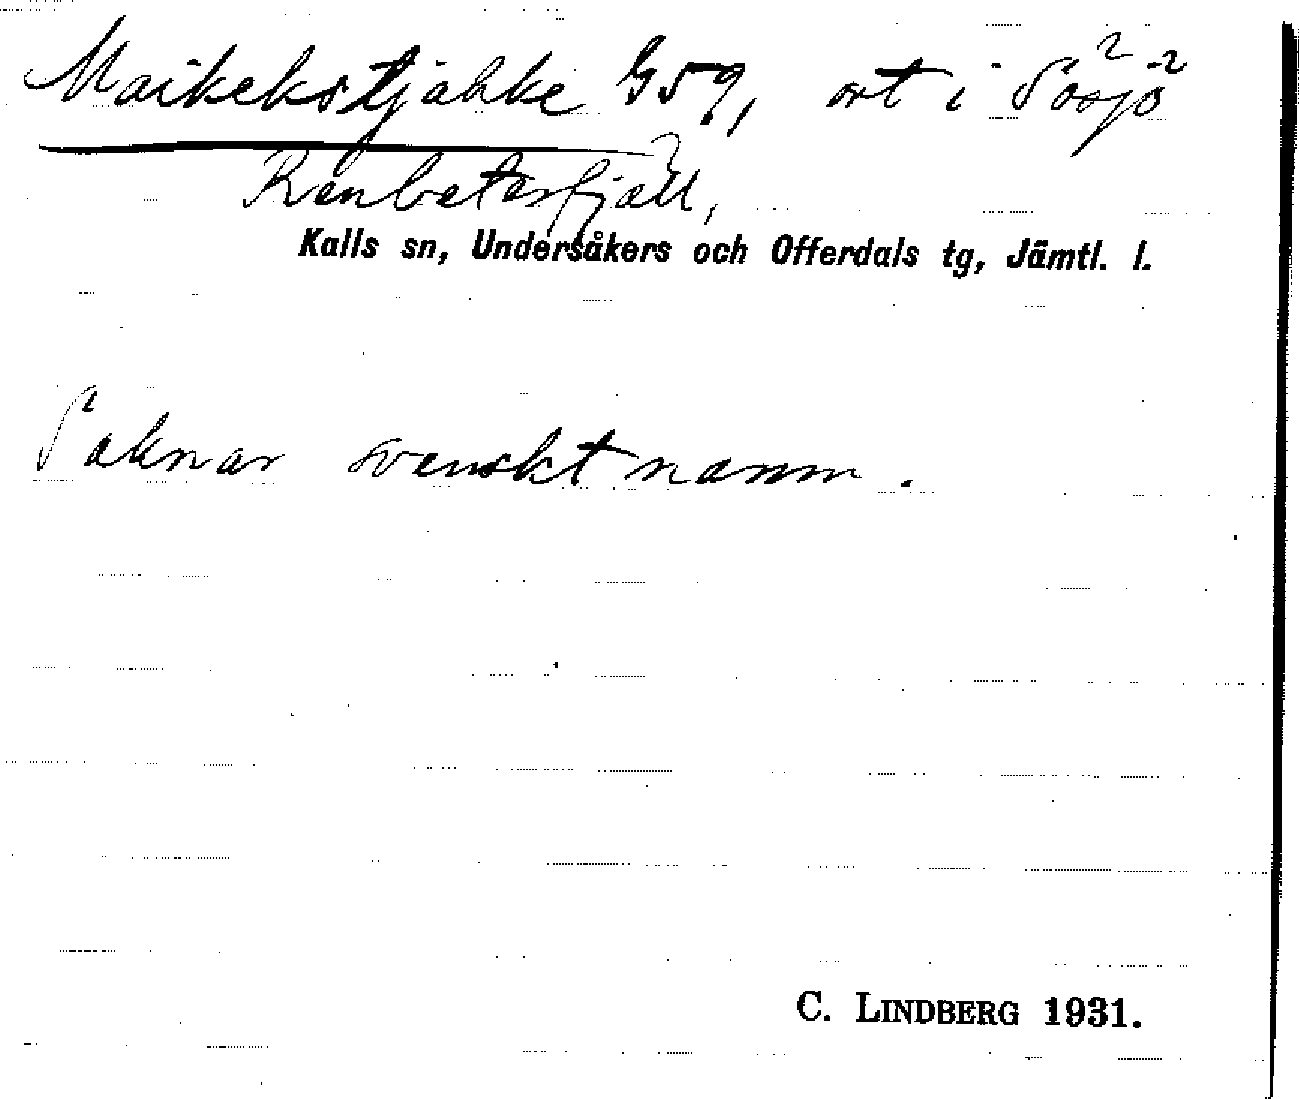 Maikekstjahke G59, ort i Sösjö
Renbetesfjäll,
Kalls sn, Undersåkers och Offerdals tg, Jämtl. l.
Saknar svenskt namn.
C. LINDBERG 1931.